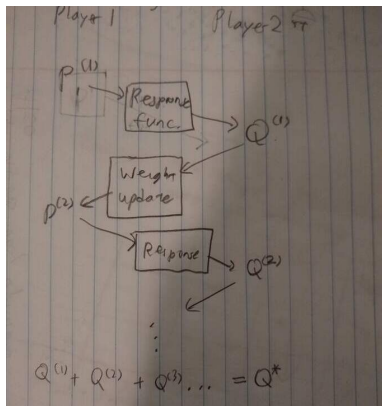 Player 1 Player 2
P₁⁽¹⁾
Response
func.
Q⁽¹⁾
Weight
update
P⁽²⁾
Response
Q⁽²⁾
⋮
Q⁽¹⁾ + Q⁽²⁾ + Q⁽³⁾ ... = Q*